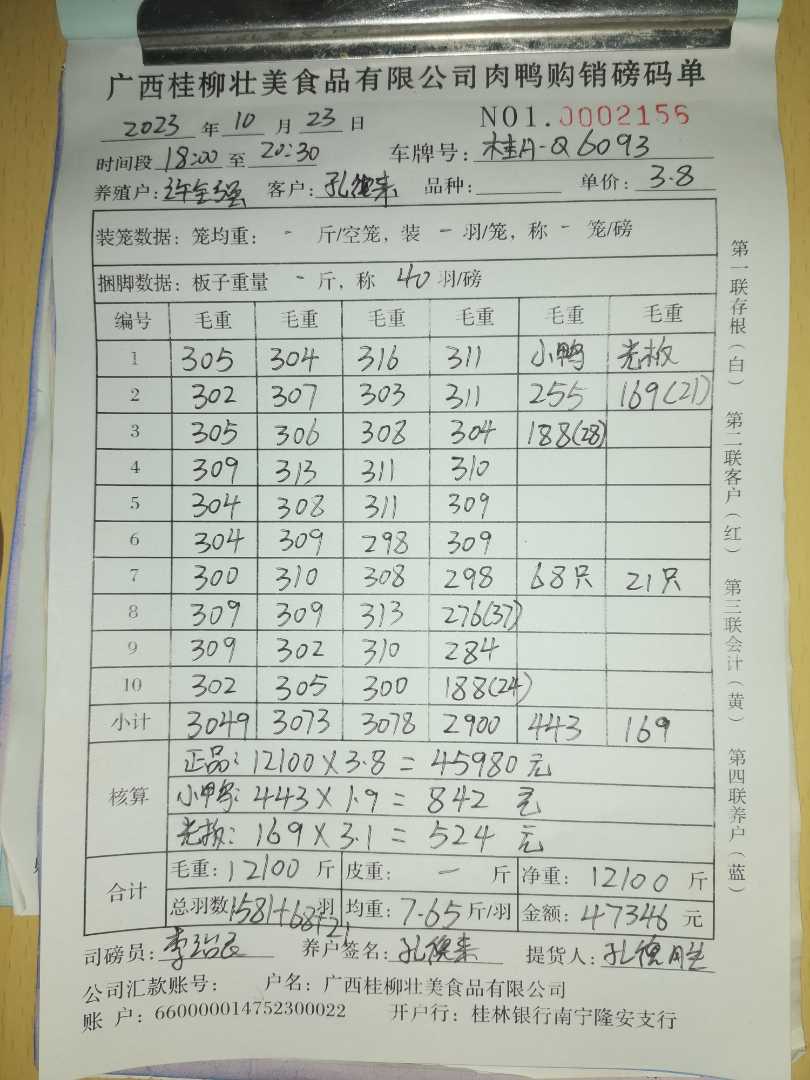 广西桂柳壮美食品有限公司肉鸭购销磅码单
2023 年 10 月 23 日 NO1.0002156
时间段 18:00 至 20:30 车牌号: 桂A-Q6093
养殖户: 许全强 客户: 孔德来 品种: 单价: 3.8
装笼数据: 笼均重: - 斤/空笼, 装 - 羽/笼, 称 - 笼/磅
捆脚数据: 板子重量 - 斤, 称 40 羽/磅
编号 毛重 毛重 毛重 毛重 毛重 毛重
1 305 304 316 311 小鸭 光板
2 302 307 303 311 255 169(21)
3 305 306 308 304 188(28)
4 309 313 311 310
5 304 308 311 309
6 304 309 298 309
7 300 310 308 298 68只 21只
8 309 309 313 276(37)
9 309 302 310 284
10 302 305 300 188(24)
小计 3049 3073 3078 2900 443 169
核算
正品: 12100×3.8=45980元
小鸭: 443×1.9=842元
光板: 169×3.1=524元
合计
毛重: 12100 斤 皮重: - 斤 净重: 12100 斤
总羽数 1581+68+21 羽 均重: 7.65 斤/羽 金额: 47346 元
司磅员: 养户签名: 孔德来 提货人: 孔德胜
公司汇款账号: 户名: 广西桂柳壮美食品有限公司
账 户: 660000014752300022 开户行: 桂林银行南宁隆安支行
第一联存根(白) 第二联客户(红) 第三联会计(黄) 第四联养户(蓝)